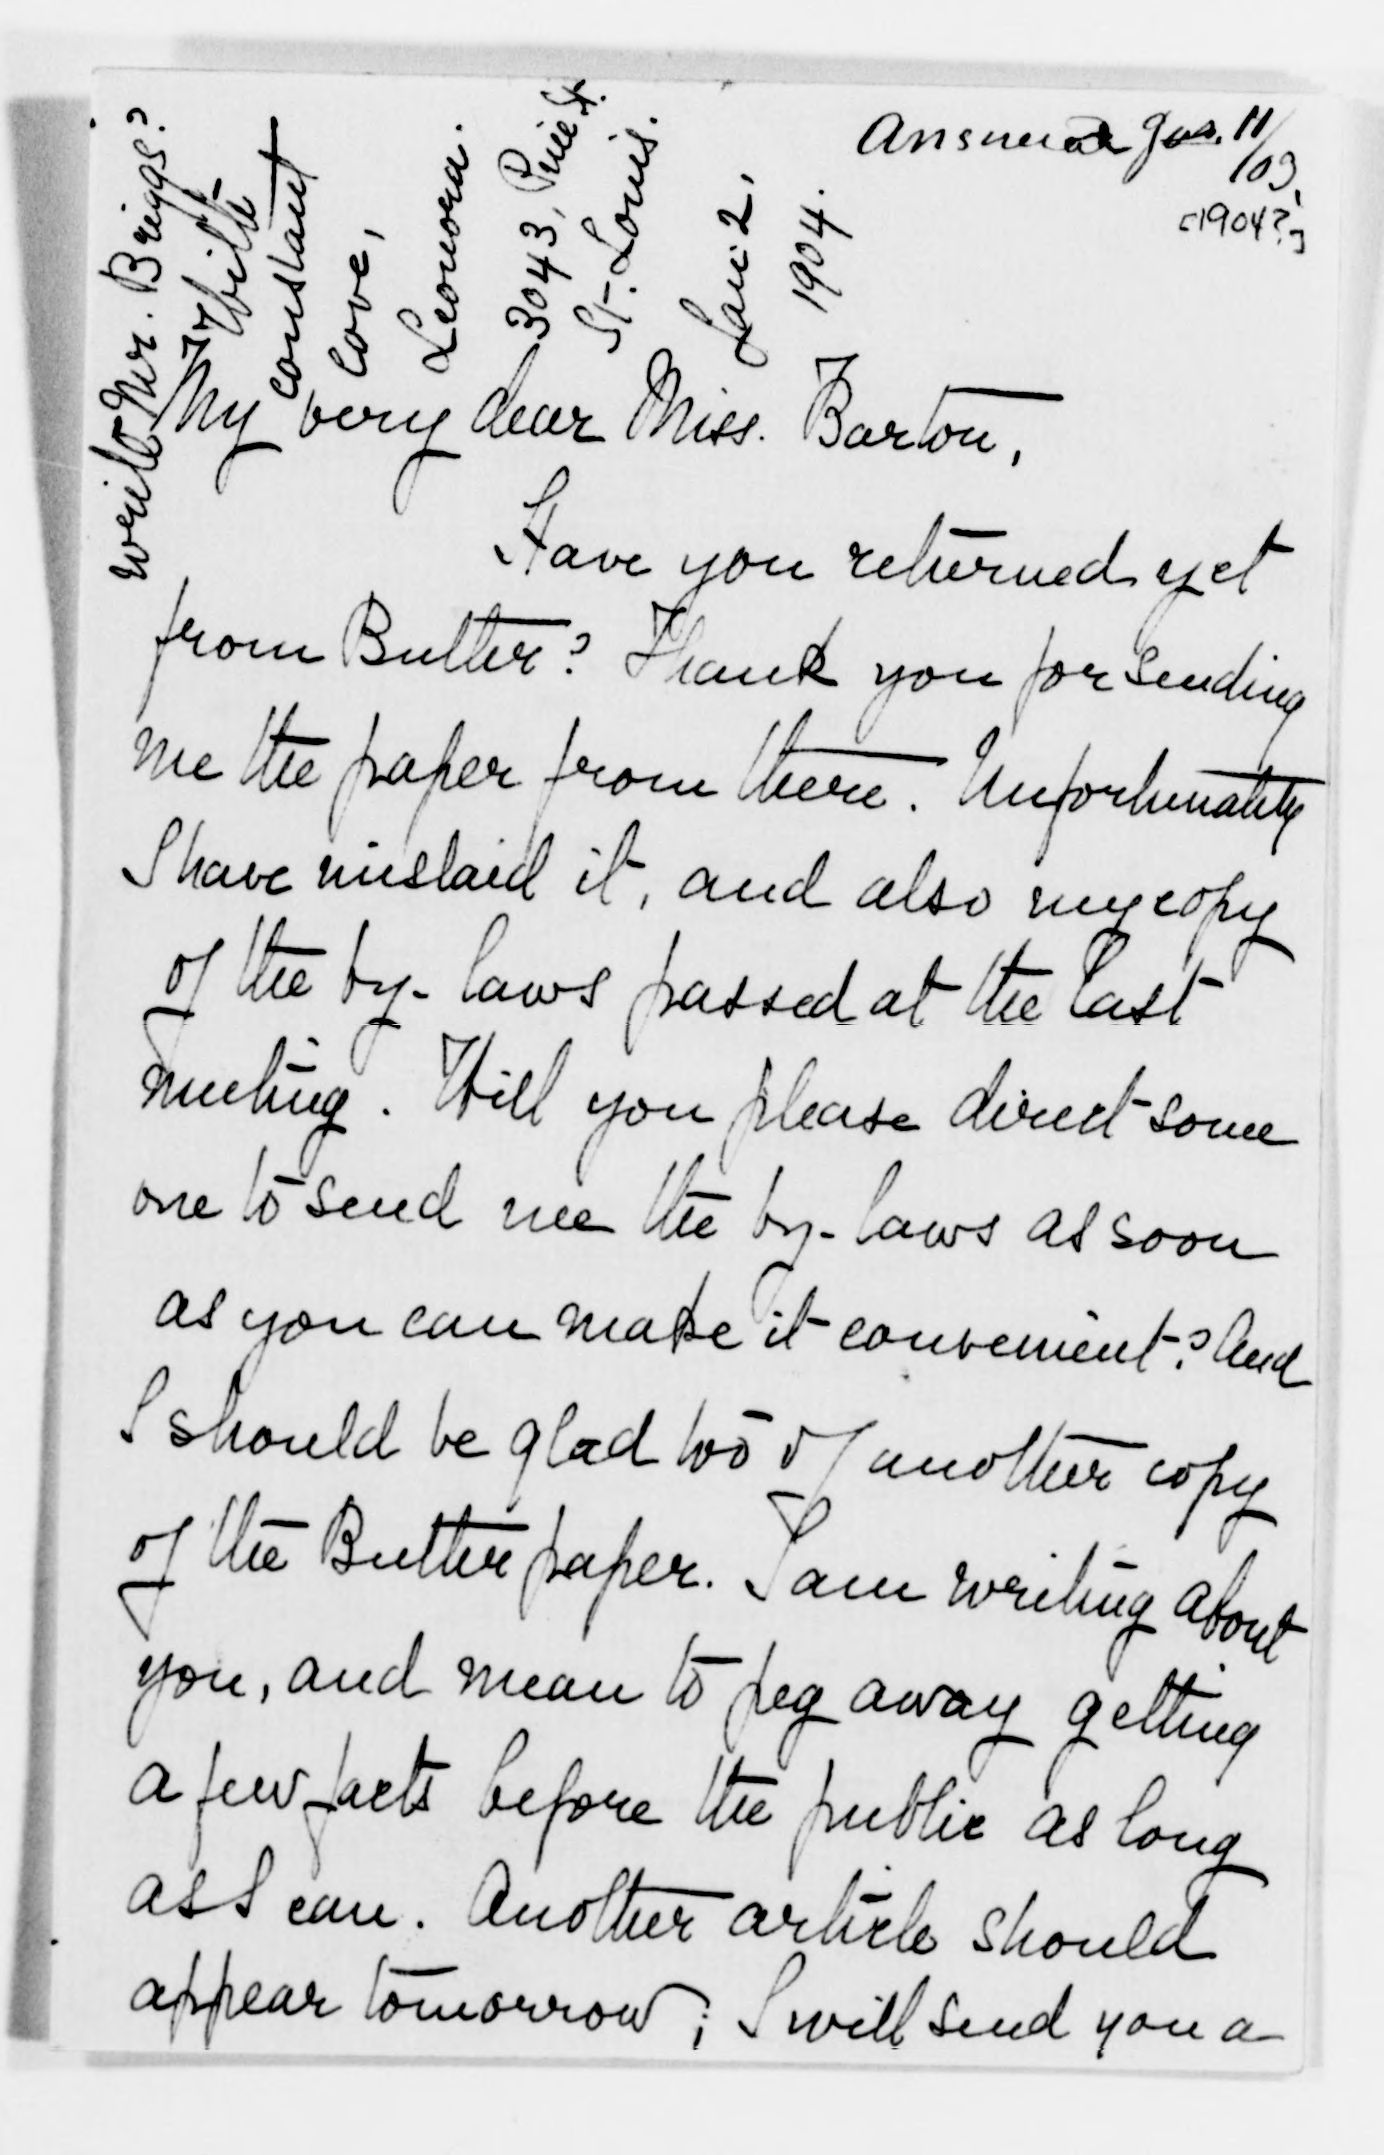 Answered Jan. 11/03.
[1904?]
write Mr. Briggs?
With
constant
love,
Leonora.
3043, Pine St.
St. Louis.
Jan: 2,
1904.
My very dear Miss. Barton,
Have you returned yet
from Butler? Thank you for sending
me the paper from there. Unfortunately
I have mislaid it, and also my copy
of the by-laws passed at the last
meeting. Will you please direct some
one to send me the by-laws as soon
as you can make it convenient? And
I should be glad too of another copy
of the Butler paper. I am writing about
you, and mean to peg away getting
a few facts before the public as long
as I can. Another article should
appear tomorrow; I will send you a